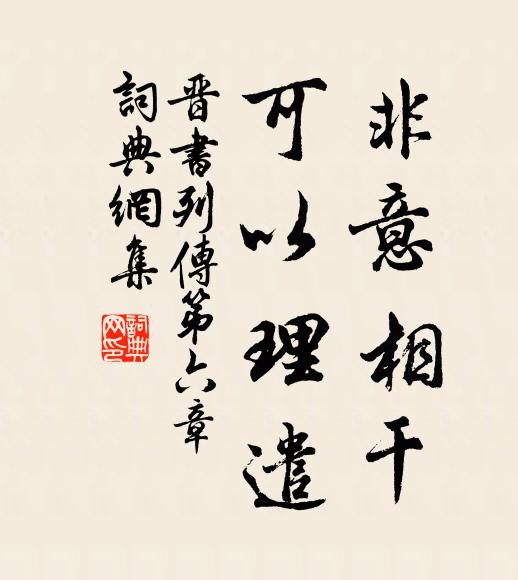 非意相干
可以理遣
晋書列傳第六章
詞典網集
詞典網印